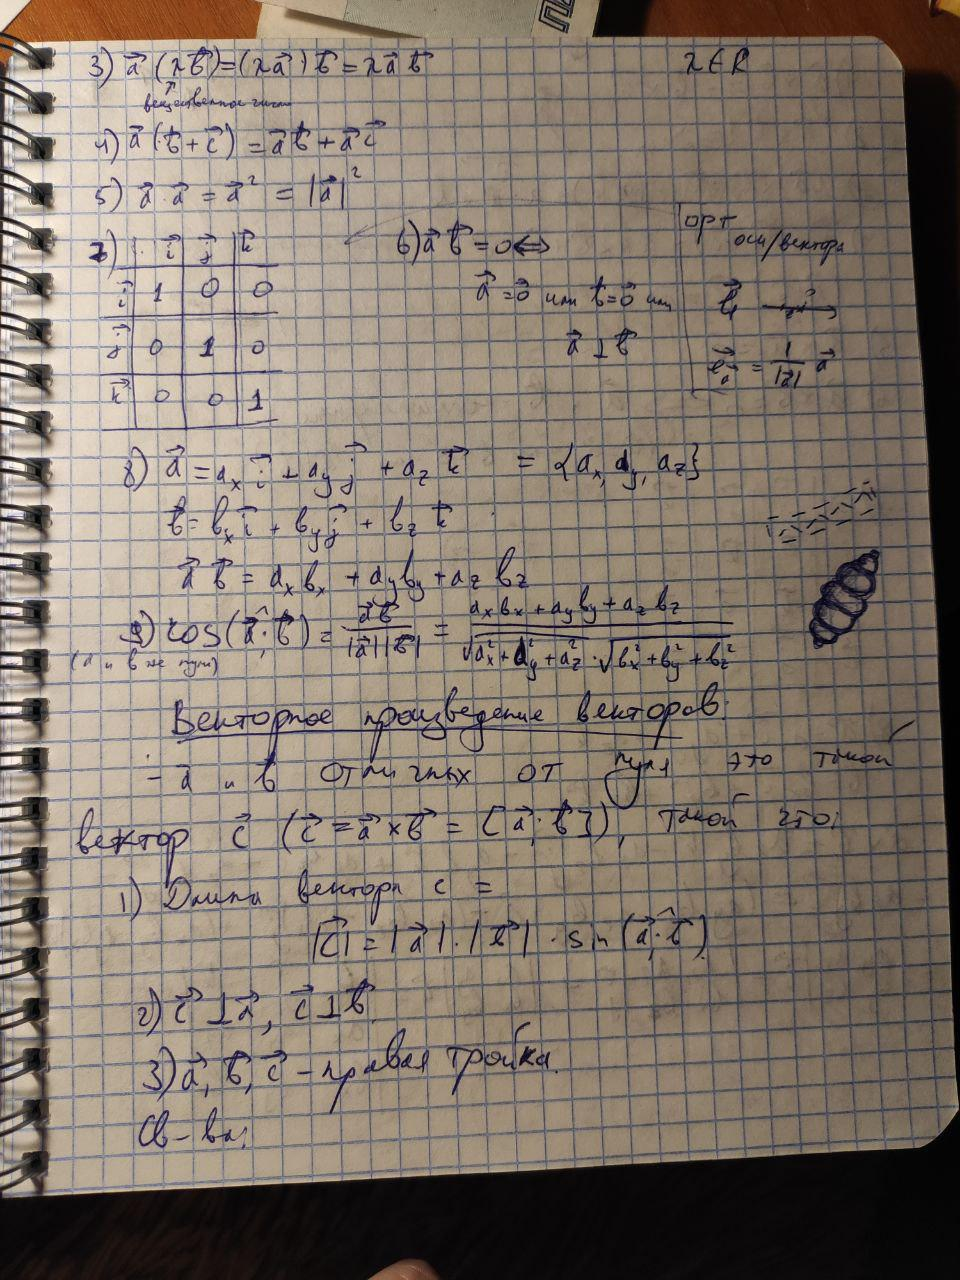 3) a⃗ (λb⃗) = (λa⃗) b⃗ = λa⃗ b⃗ λ∈R
вещественное число
4) a⃗ (b⃗ + c⃗) = a⃗ b⃗ + a⃗ c⃗
5) a⃗ · a⃗ = a⃗² = |a⃗|²
6) a⃗ b⃗ = 0 ⇔
a⃗ = 0⃗ или b⃗ = 0⃗ или
a⃗ ⊥ b⃗
орт оси/вектора
e⃗_a⃗ = 1/|a⃗| a⃗
7) i⃗ j⃗ k⃗
i⃗ 1 0 0
j⃗ 0 1 0
k⃗ 0 0 1
8) a⃗ = aₓ i⃗ + a_y j⃗ + a_z k⃗ = {aₓ, a_y, a_z}
b⃗ = bₓ i⃗ + b_y j⃗ + b_z k⃗
a⃗ b⃗ = aₓ bₓ + a_y b_y + a_z b_z
9) cos(a⃗;^b⃗) = a⃗ b⃗ / |a⃗||b⃗| = (aₓbₓ + a_y b_y + a_z b_z) / (√(aₓ² + a_y² + a_z²) · √(bₓ² + b_y² + b_z²))
(a и b не нули)
Векторное произведение векторов.
- a⃗ и b⃗ отличных от нуля это такой
вектор c⃗ (c⃗ = a⃗ × b⃗ = [a⃗; b⃗]), такой что:
1) Длина вектора c =
|c⃗| = |a⃗| · |b⃗| · sin (a⃗;^b⃗)
2) c⃗ ⊥ a⃗, c⃗ ⊥ b⃗.
3) a⃗, b⃗, c⃗ – правая тройка.
Св-ва: